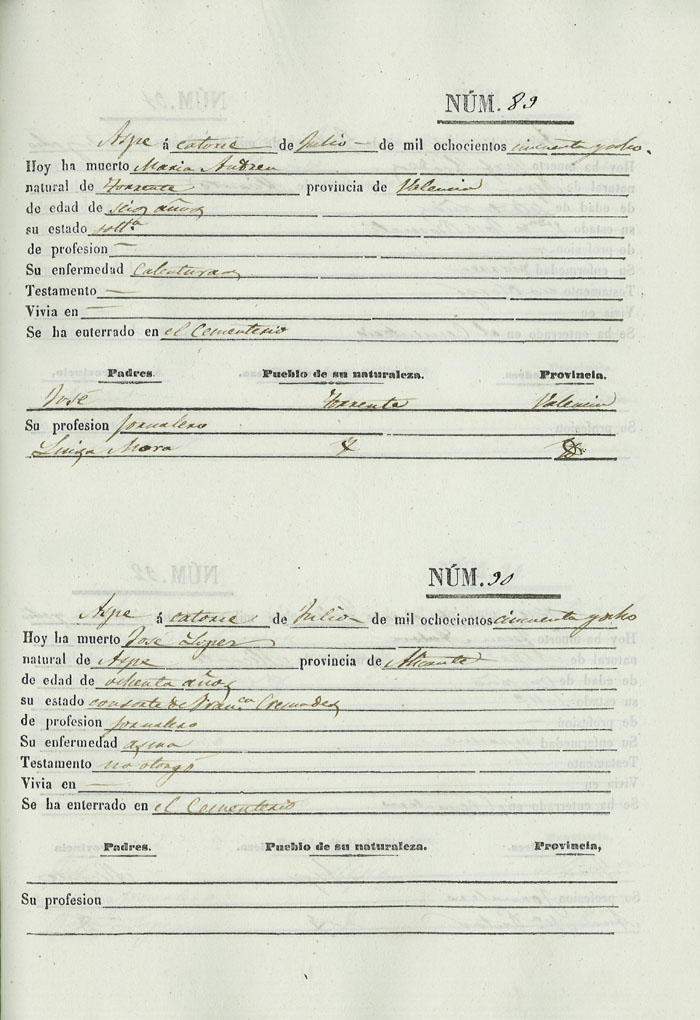 NÚM. 89
Aspe á catorce de Julio de mil ochocientos cincuenta y ocho.
Hoy ha muerto Maria Andreu
natural de Torrente provincia de Valencia
de edad de seis años
su estado solt.ª
de profesion —
Su enfermedad Calenturas
Testamento —
Vivia en —
Se ha enterrado en el Cementerio
Padres. Pueblo de su naturaleza. Provincia.
José Torrente Valencia
Su profesion Jornalero
Mora
NÚM. 90
Aspe á catorce de Julio de mil ochocientos cincuenta y ocho
Hoy ha muerto José Lopez
natural de Aspe provincia de Alicante
de edad de ochenta años
su estado consorte de Fran.ca Cremades
de profesion Jornalero
Su enfermedad asma
Testamento no otorgó
Vivia en —
Se ha enterrado en el Cementerio
Padres. Pueblo de su naturaleza. Provincia,
Su profesion